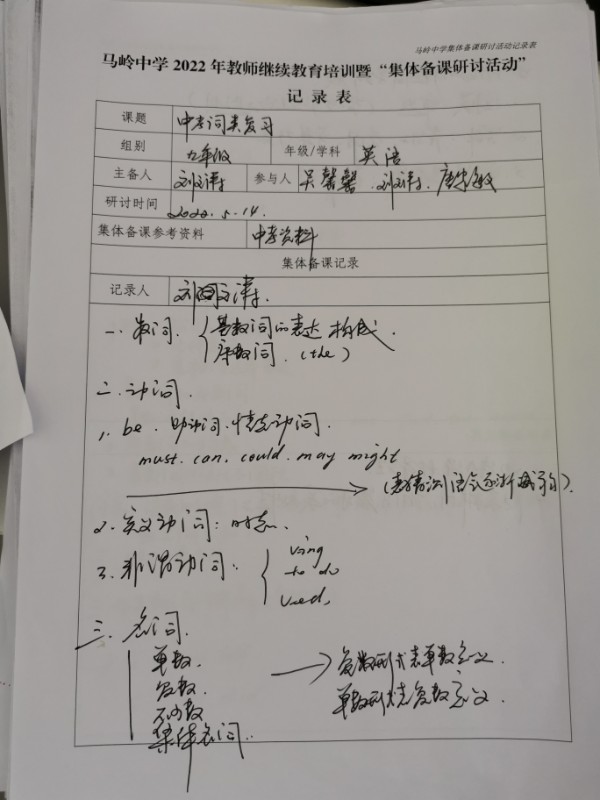 马岭中学集体备课研讨活动记录表
马岭中学 2022 年教师继续教育培训暨“集体备课研讨活动”
记 录 表
课题 中考词类复习
组别 九年级 年级/学科 英语
主备人 刘文泽 参与人 吴馨馨、刘文泽、
研讨时间 2022.5.14.
集体备课参考资料 中考资料
集体备课记录
记录人 刘文泽
一、数词. { 基数词的表达 构成.
序数词. (the)
二、动词.
1, be. 助动词. 情态动词.
must. can. could. may might
(表猜测语气逐渐减弱).
2. 实义动词: 时态.
3. 非谓动词: { ving
to do
Ved,
三、名词.
单数. → 复数形式表单数意义.
复数. 单数形式表复数意义.
不可数
集体名词.